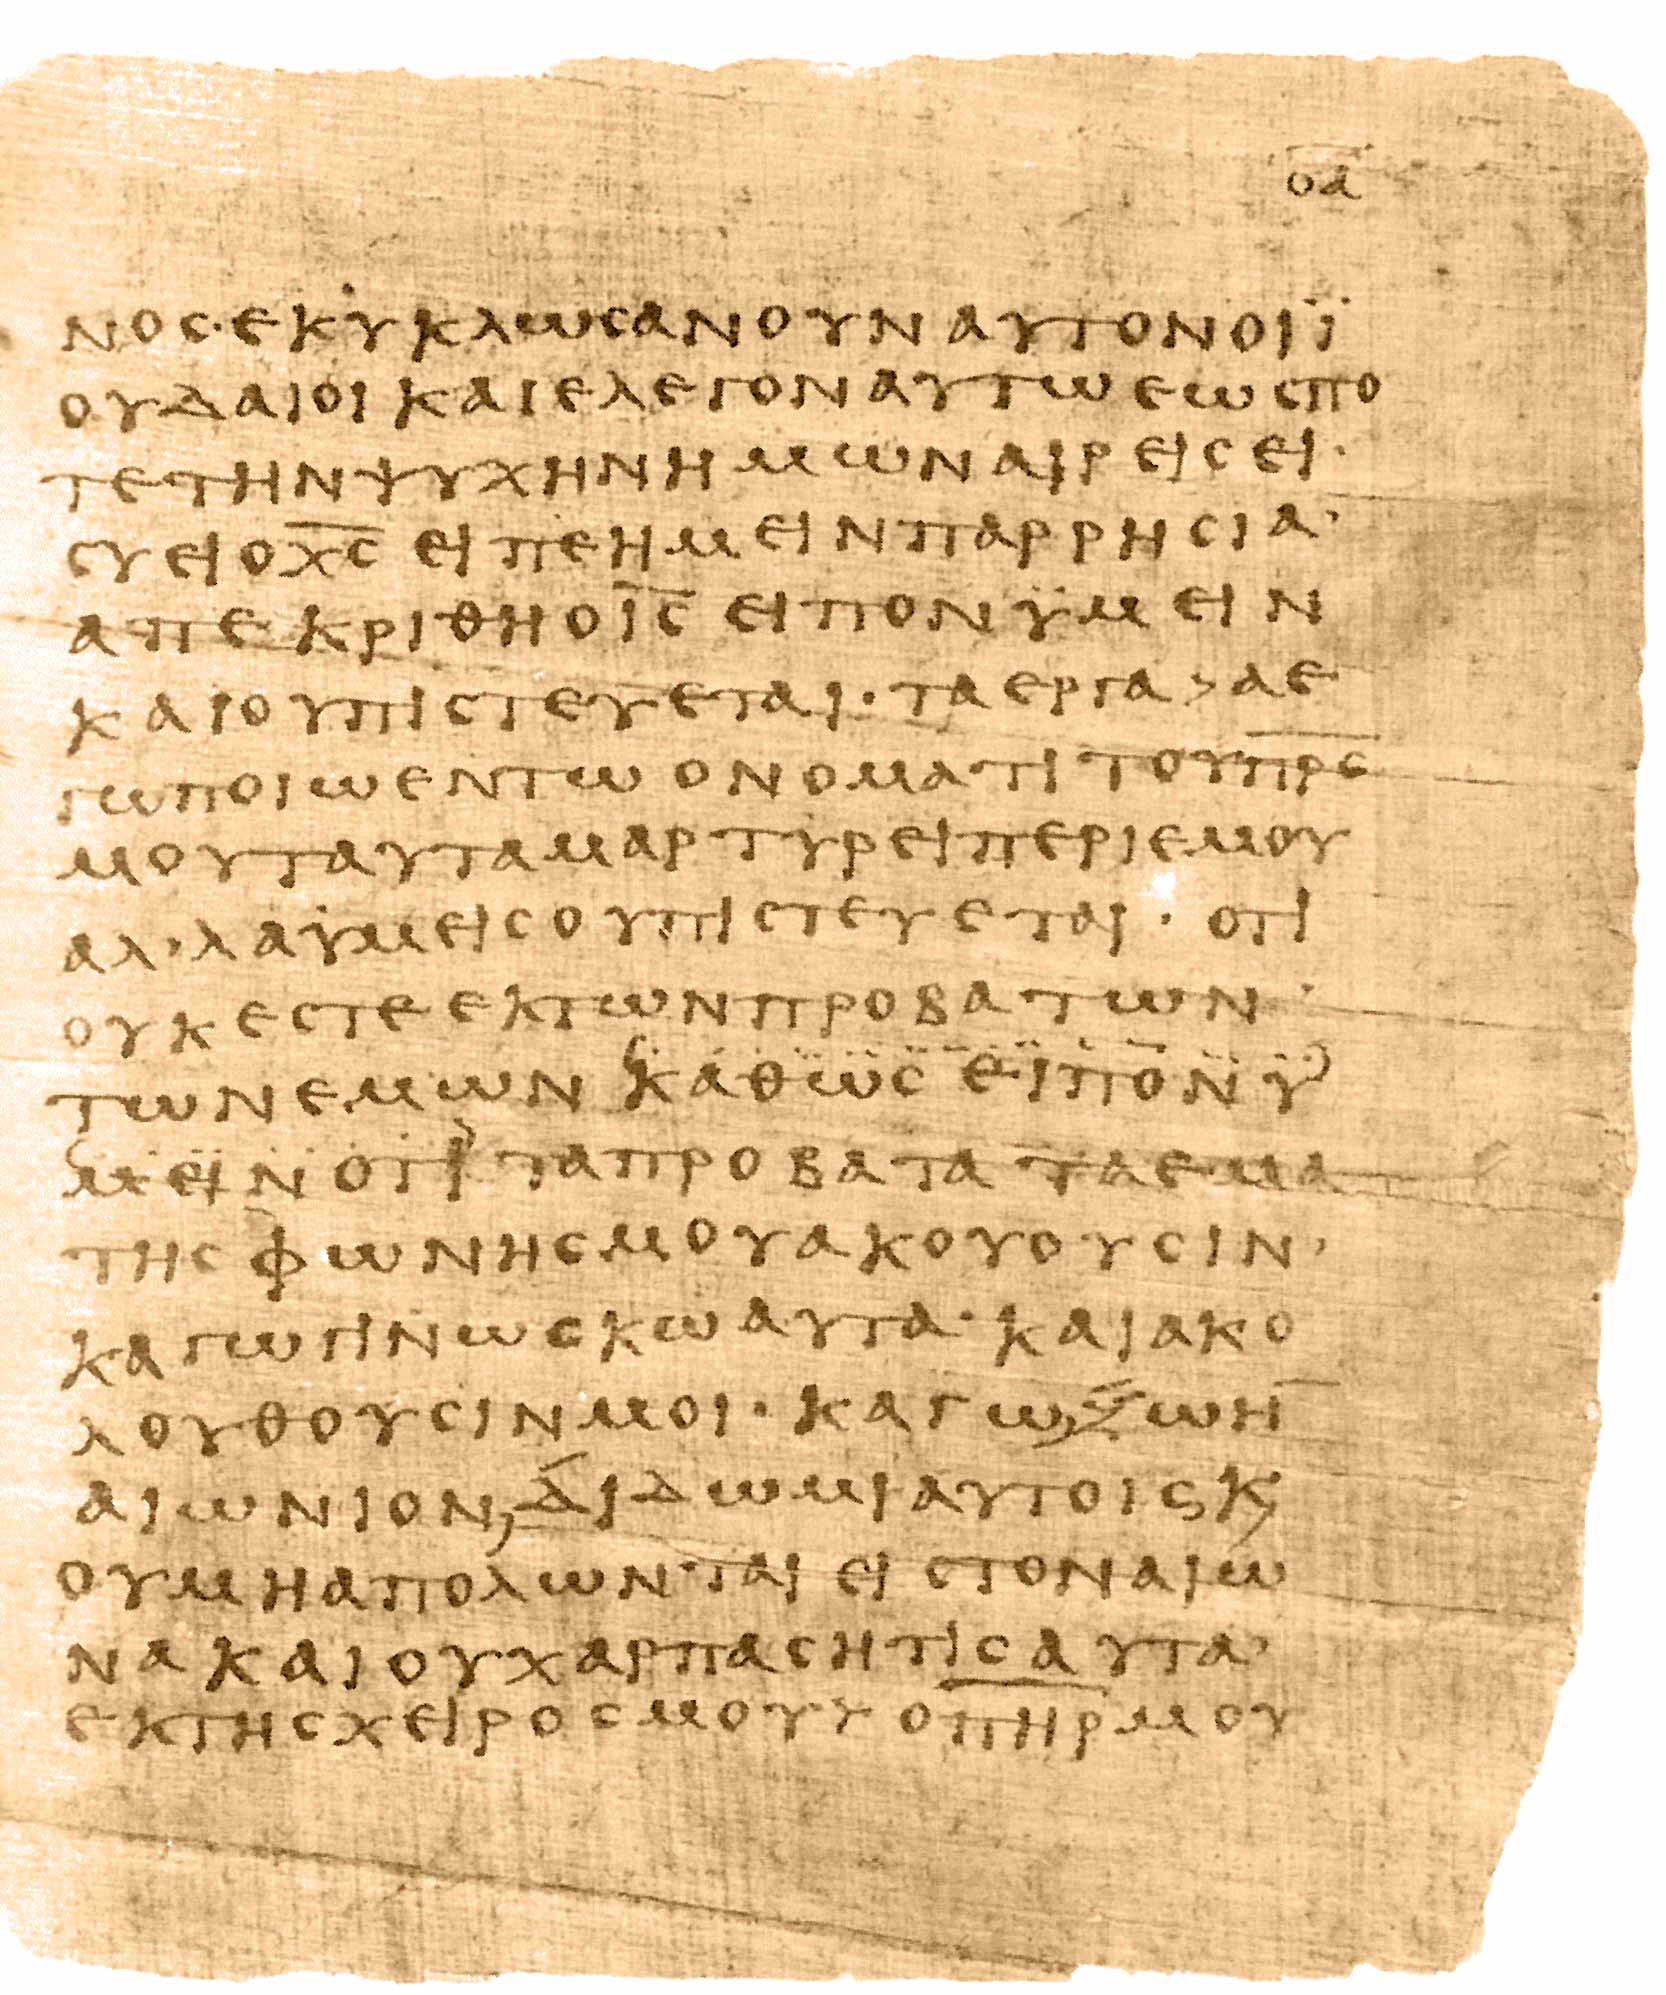 ο̅α̅
νος·εκυκλωσανουναυτονοιϊ
ουδαιοικαιελεγοναυτωεωςπο
τετηνψυχηνημωναιρειςει·
συειοχ̅ς̅ειπεημεινπαρρησια·
απεκριθηοι̅ς̅ειπονϋμειν
καιουπιστευεται·ταεργα›αε
γωποιωεντωονοματιτουπ̅ρ̅ς̅
μουταυταμαρτυρειπεριεμου
αλ’λαϋμειςουπιστευεται·οτι
ουκεστεεκτωνπροβατων·
τωνεμωνκαθωςειπονϋ
μεινοτιταπροβαταταεμα
τηςφωνηςμουακουουσιν·
καγωγινωσκωαυτα·καιακο
λουθουσινμοι·καγωζωη̅
αιωνιονδιδωμιαυτοιςκ,
ουμηαπολωνταιειςτοναιω
νακαιουχαρπασητιςαυτα·
εκτηςχειροςμουυοπ̅η̅ρ̅μου